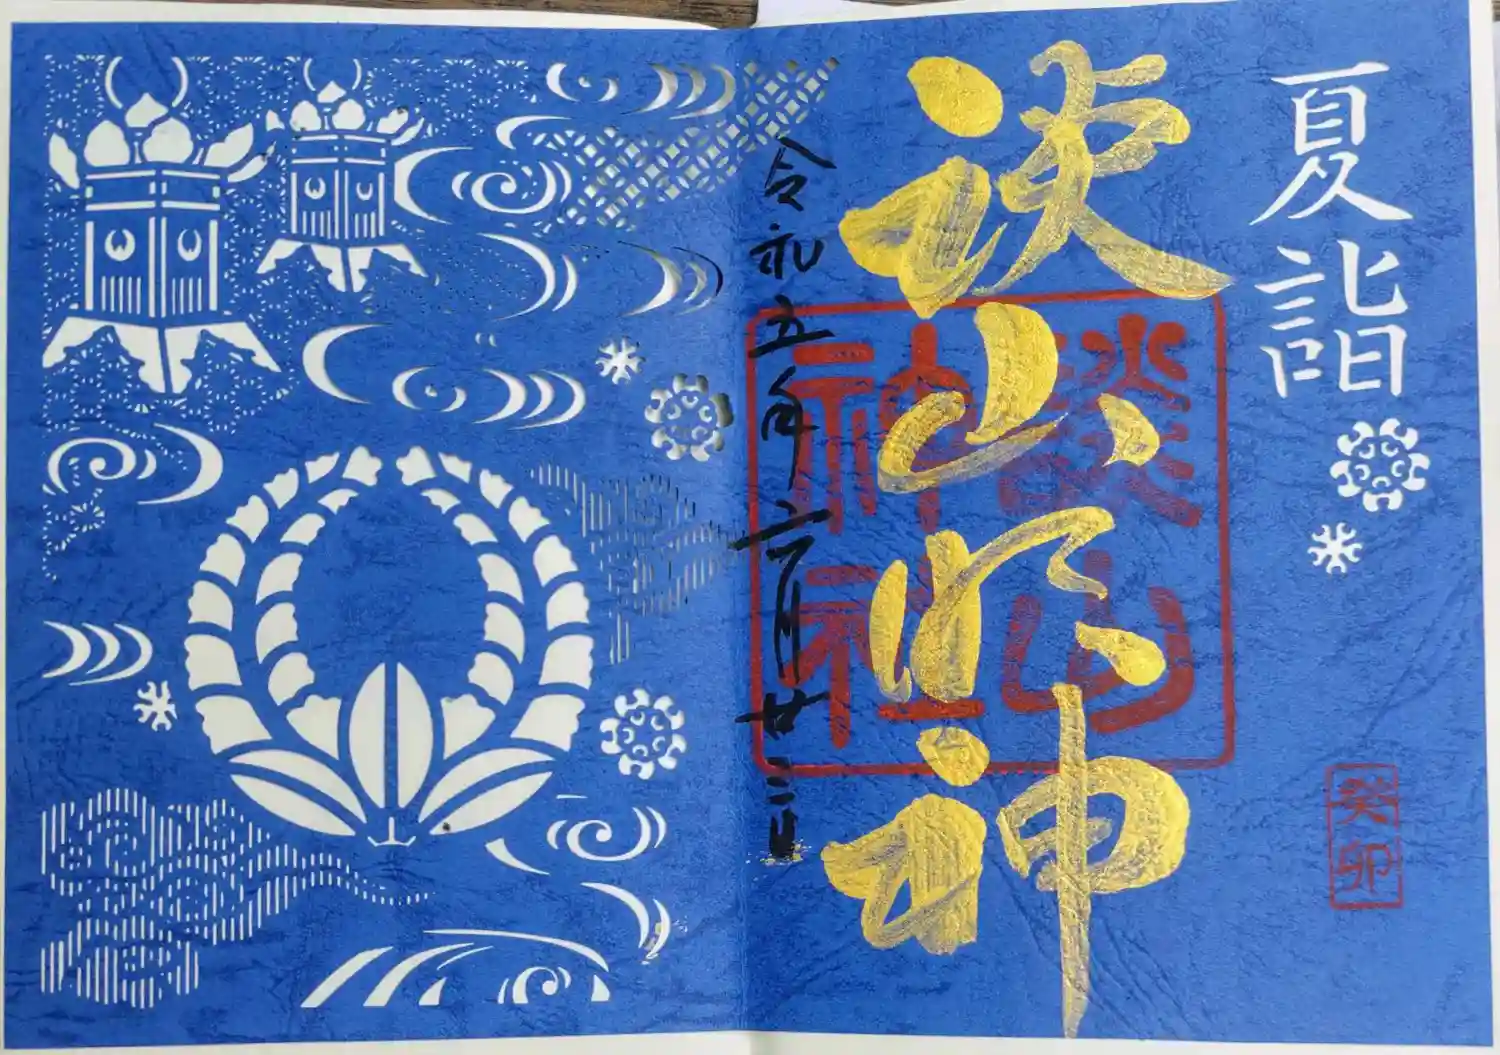 夏詣
癸卯
談山明神
談山
神社
令和五年六月廿三日